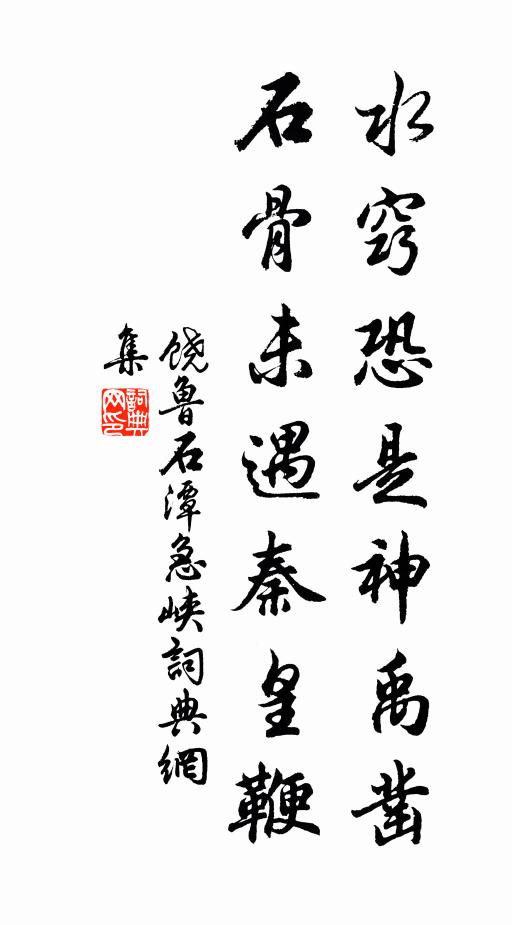 水窍恐是神禹凿
石骨未遇秦皇鞭
饶鲁石潭急峡詞典網
集
詞典网印